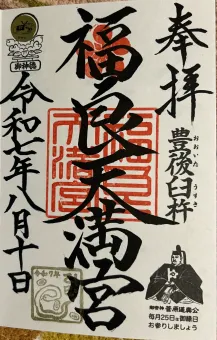 奉拝
豊後臼杵
おおいた うすき
福良天満宮
令和七年八月十日
御神徳
令和7年
御祭神 菅原道真公
毎月25日は御縁日
お参りしましょう